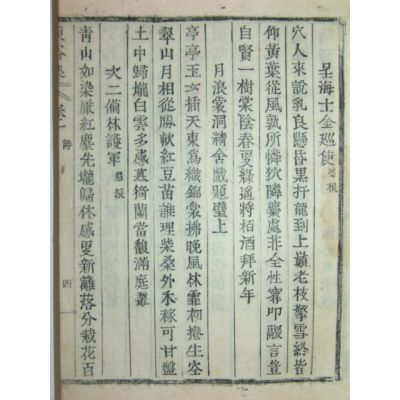 呈海士金巡使
穴人來說乳良懸昏黑打龍到上巔老枝擎雪終皆
仰黃葉從風孰所憐狄隣麋處非全性寗叩言豈
自賢一樹棠陰春夏綠遙將栢酒拜新年
月浪裳洞精舍戲題壁上
亭亭玉女插天東爲織錦裳拂晩風林霏初捲生空
翠山月相從勝軟紅豆苗誰理柴桑外禾稼可甘盤
土中歸壠白雲多感猗蘭當馥滿庭叢
次二衛林護軍
靑山如染厭紅塵先壠歸休感更新籬落分栽花百
卷一 詩 四